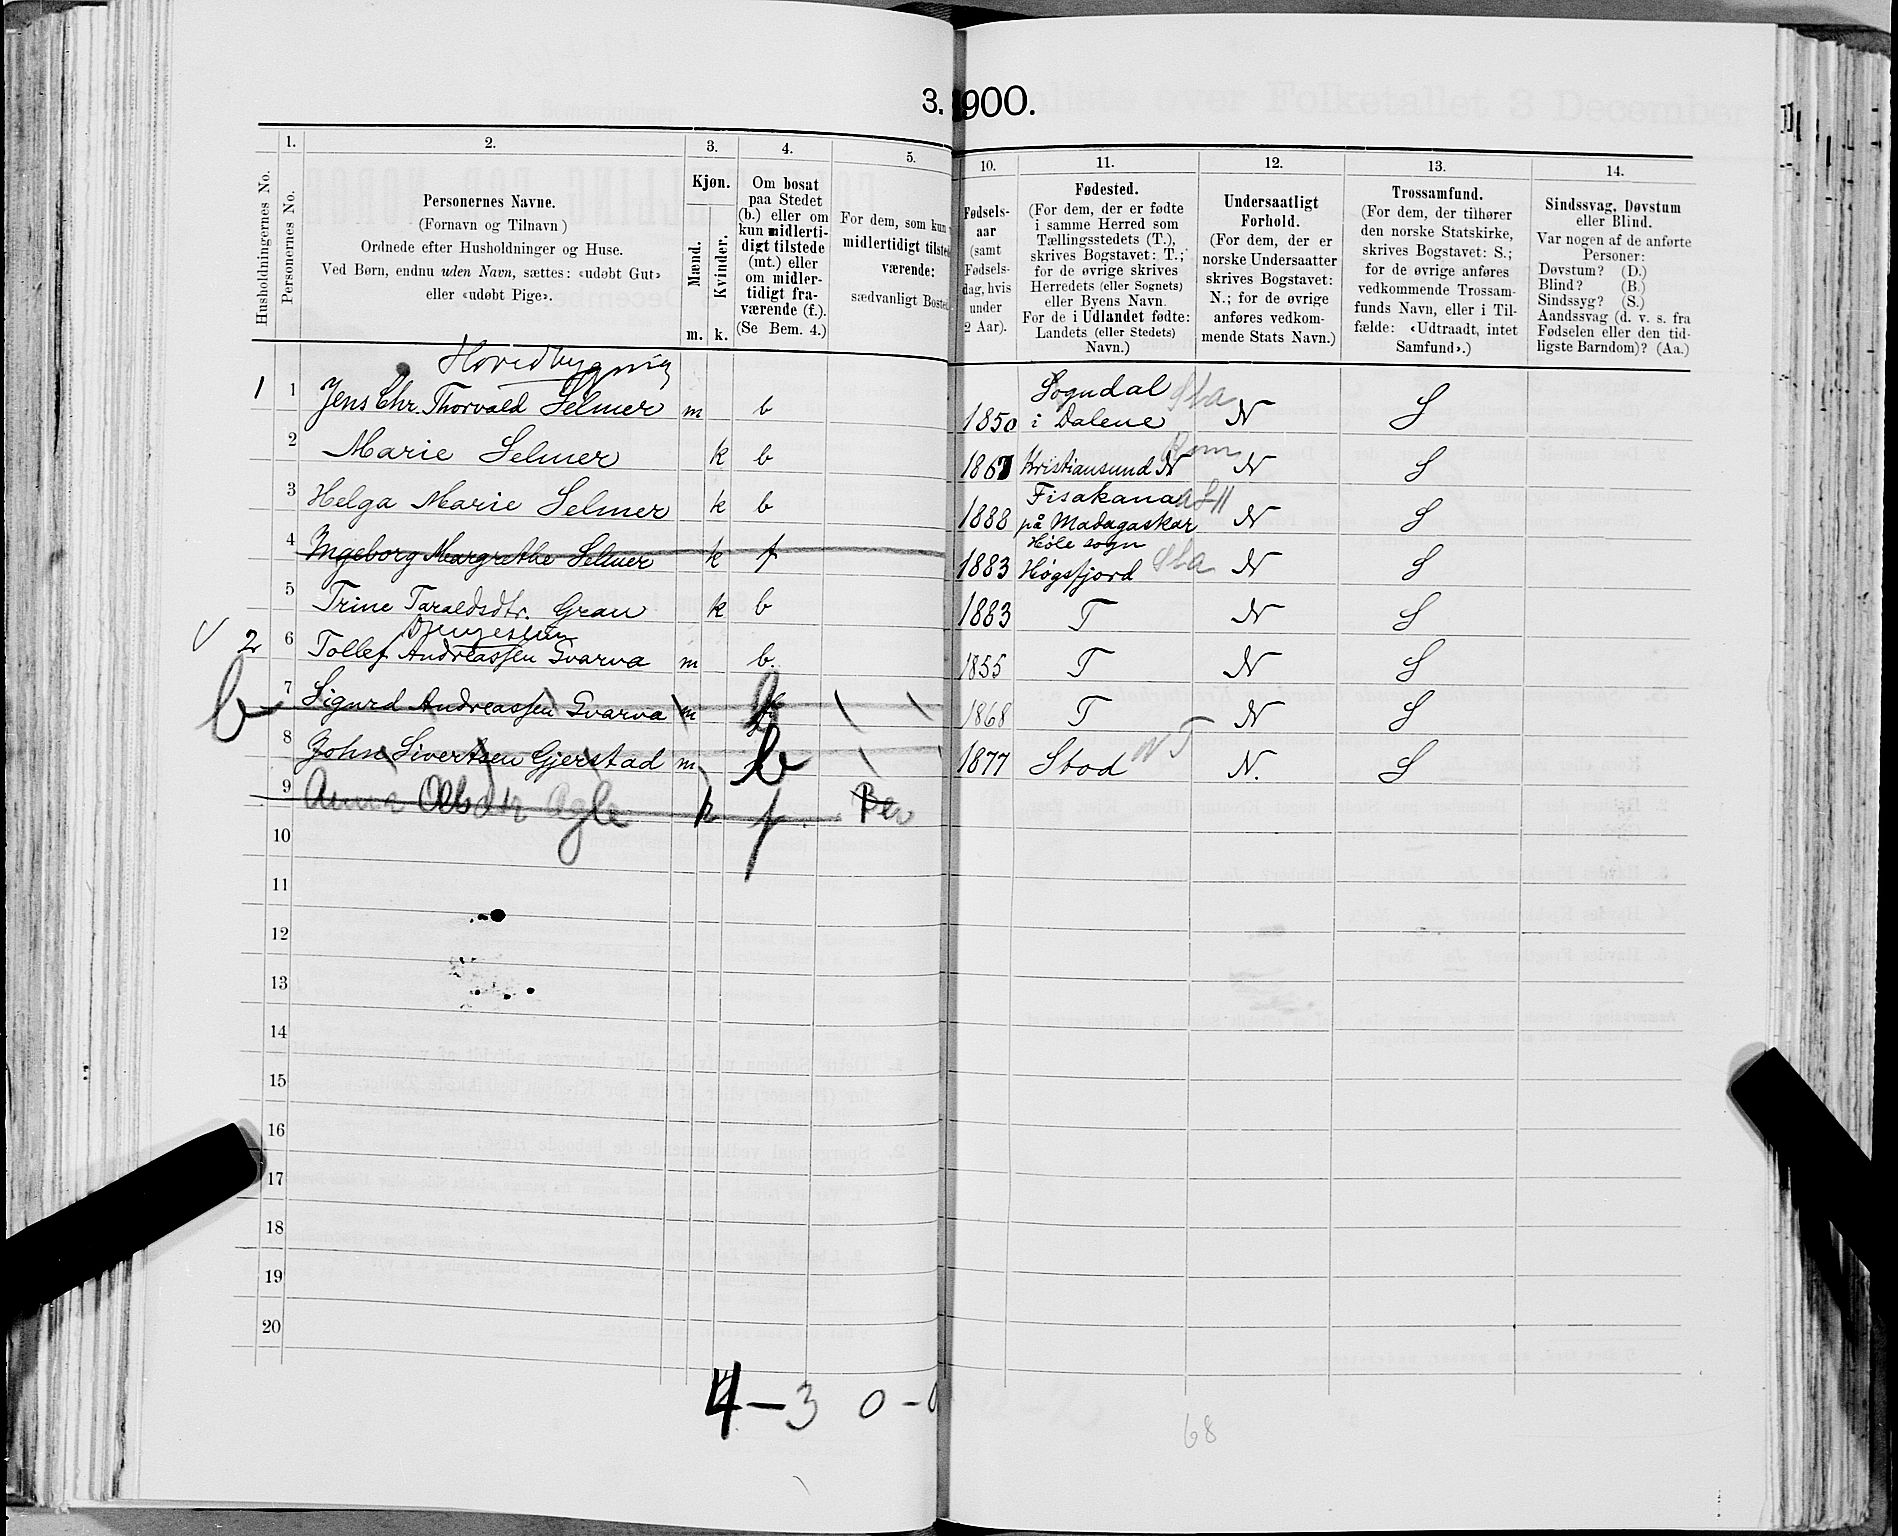 3. 1900.
1.
2.
3.
4.
5.
10.
11.
12.
13.
14.
Husholdningernes No.
Personernes No.
Personernes Navne.
(Fornavn og Tilnavn)
Ordnede efter Husholdninger og Huse.
Ved Børn, endnu uden Navn, sættes: «udøbt Gut»
eller «udøbt Pige».
Kjøn.
Mænd.
Kvinder.
m. k.
Om bosat
paa Stedet
(b.) eller om
kun midlerti-
digt tilstede
(mt.) eller
om midler-
tidigt fra-
værende (f.).
(Se Bem. 4.)
For dem, som kun
midlertidigt tilste
værende:
sædvanligt Boste
Fødsels-
aar
(samt
Fødsels-
dag, hvis
under
2 Aar).
Fødested.
(For dem, der er fødte
i samme Herred som
Tællingsstedets (T.),
skrives Bogstavet: T.;
for de øvrige skrives
Herredets (eller Sognets)
eller Byens Navn.
For de i Udlandet fødte:
Landets (eller Stedets)
Navn.)
Undersaatligt
Forhold.
(For dem, der er
norske Undersaatter
skrives Bogstavet:
N.; for de øvrige
anføres vedkom-
mende Stats Navn.)
Trossamfund.
(For dem, der tilhører
den norske Statskirke,
skrives Bogstavet: S.;
for de øvrige anføres
vedkommende Trossam-
funds Navn, eller i Til-
fælde: «Udtraadt, intet
Samfund».)
Sindssvag, Døvstum
eller Blind.
Var nogen af de anførte
Personer:
Døvstum? (D.)
Blind? (B.)
Sindssyg? (S.)
Aandssvag (d. v. s. fra
Fødselen eller den tid-
ligste Barndom)? (Aa.)
Hovedbygning
1 1 Jens Chr. Thorvald Selmer m b 1850 Sogndal i Dalene Sta N S
2 Marie Selmer k b 1867 Kristiansund N Rom N S
3 Helga Marie Selmer k b 1888 Fisakana på Madagaskar N S
4 Ingeborg Margrethe Selmer k f 1883 Høle sogn Høgsfjord Sta N S
5 Trine Taraldsdtr. Gran k b 1883 T N S
2 6 Tollef Andreassen Svarva m b. 1855 T N S
b 7 Sigurd Andreassen Svarva m 1868 T N S
8 John Sivertsen Gjerstad m b 1877 Stod NT N. S
9 Anna Olsdtr Agle k f
10
11
12
13
14
15
16
17
18
19
20
4 – 3 0 – 0
68